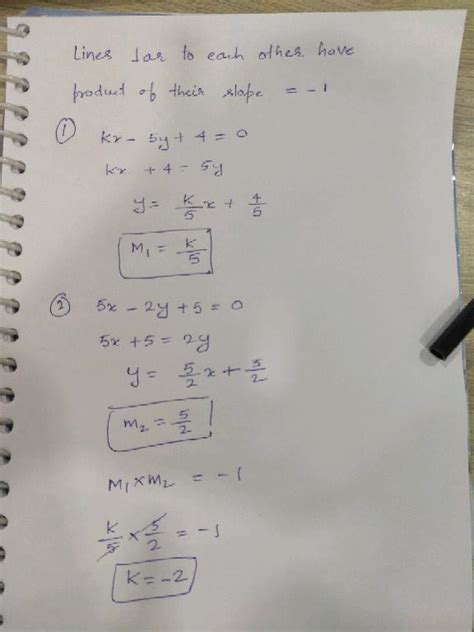 Lines ⊥ar to each other have
product of their slope = -1
① kx - 5y + 4 = 0
kx + 4 = 5y
y = k/5 x + 4/5
M₁ = k/5
② 5x - 2y + 5 = 0
5x + 5 = 2y
y = 5/2 x + 5/2
m₂ = 5/2
M₁ x M₂ = -1
k/5 x 5/2 = -1
K = -2